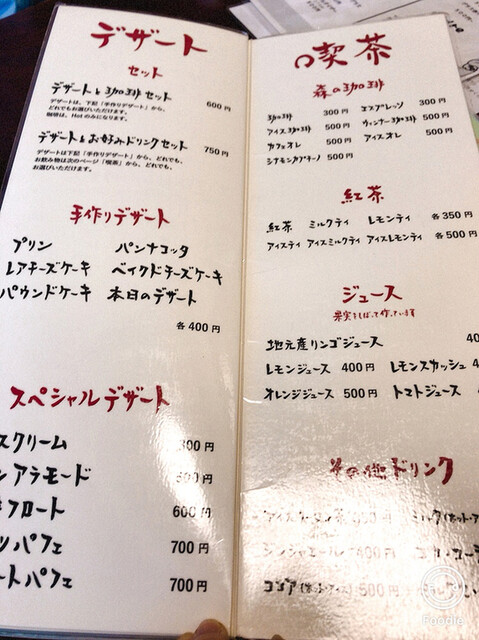 デザート
セット
デザートと珈琲セット 600円
デザートは、下記「手作りデザート」から、
どれでもお選びいただけます。
珈琲は、Hotのみになります。
デザートとお好みドリンクセット 750円
デザートは下記「手作りデザート」から、どれでも、
お飲み物は次のページ「喫茶」から、どれでも、
お選びいただけます。
手作りデザート
プリン パンナコッタ
レアチーズケーキ ベイクドチーズケーキ
パウンドケーキ 本日のデザート
各400円
スペシャルデザート
スクリーム 300円
アラモード
フロート 600円
パフェ 700円
ートパフェ 700円
喫茶
森の珈琲
珈琲 300円 エスプレッソ 300円
アイス珈琲 500円 ウィンナー珈琲 500円
カフェオレ 500円 アイスオレ 500円
シナモンカプチーノ 500円
紅茶
紅茶 ミルクティ レモンティ 各350円
アイスティ アイスミルクティ アイスレモンティ 各500円
ジュース
果実をしぼって作っています
地元産リンゴジュース 40
レモンジュース 400円 レモンスカッシュ 4
オレンジジュース 500円 トマトジュース 4
その他ドリンク
アイスウーロン茶 ミルク(ホット・ア
ジンジャエール 400円
ココア(ホット・アイス) 500円
Foodie